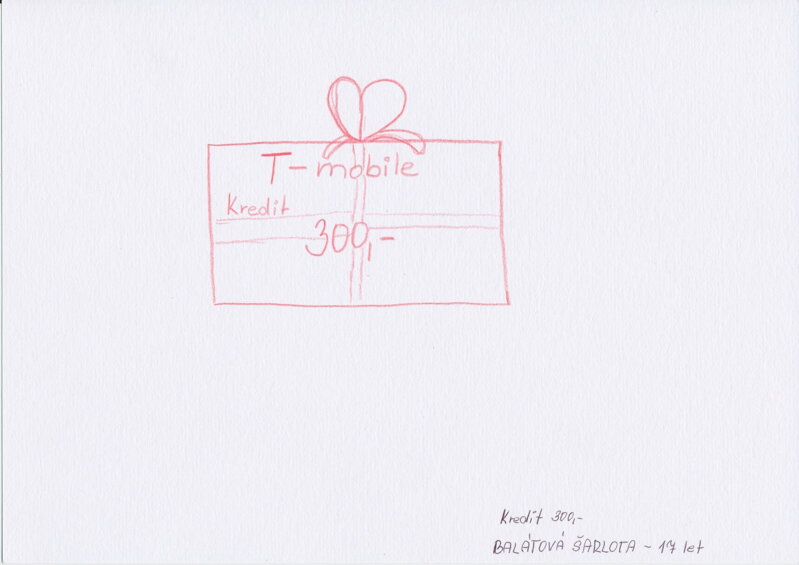 T-mobile
Kredit
300,-
Kredit 300,-
BALÁTOVÁ ŠARLOTA - 17 let